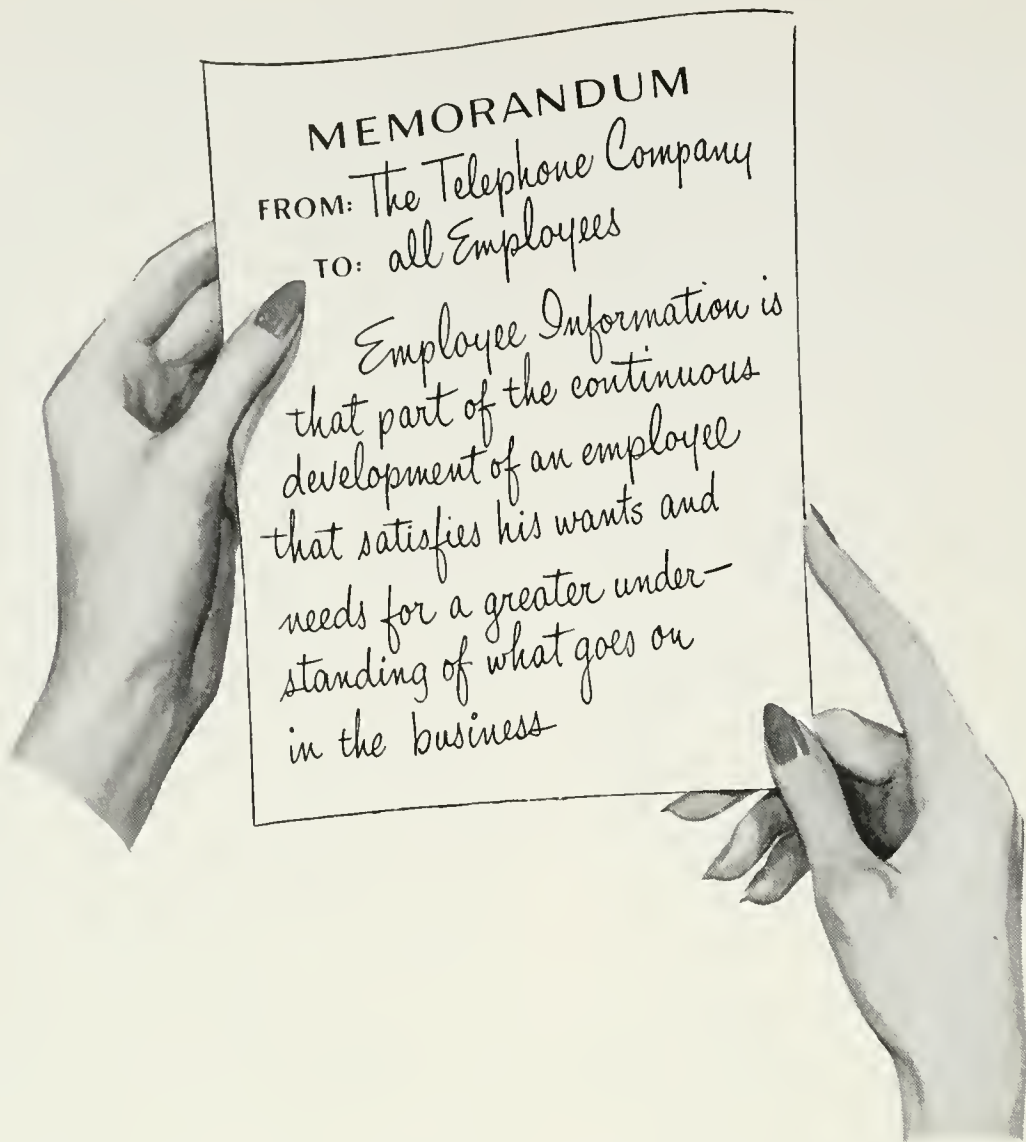 MEMORANDUM
FROM: The Telephone Company
TO: all Employees
Employee Information is
that part of the continuous
development of an employee
that satisfies his wants and
needs for a greater under-
standing of what goes on
in the business